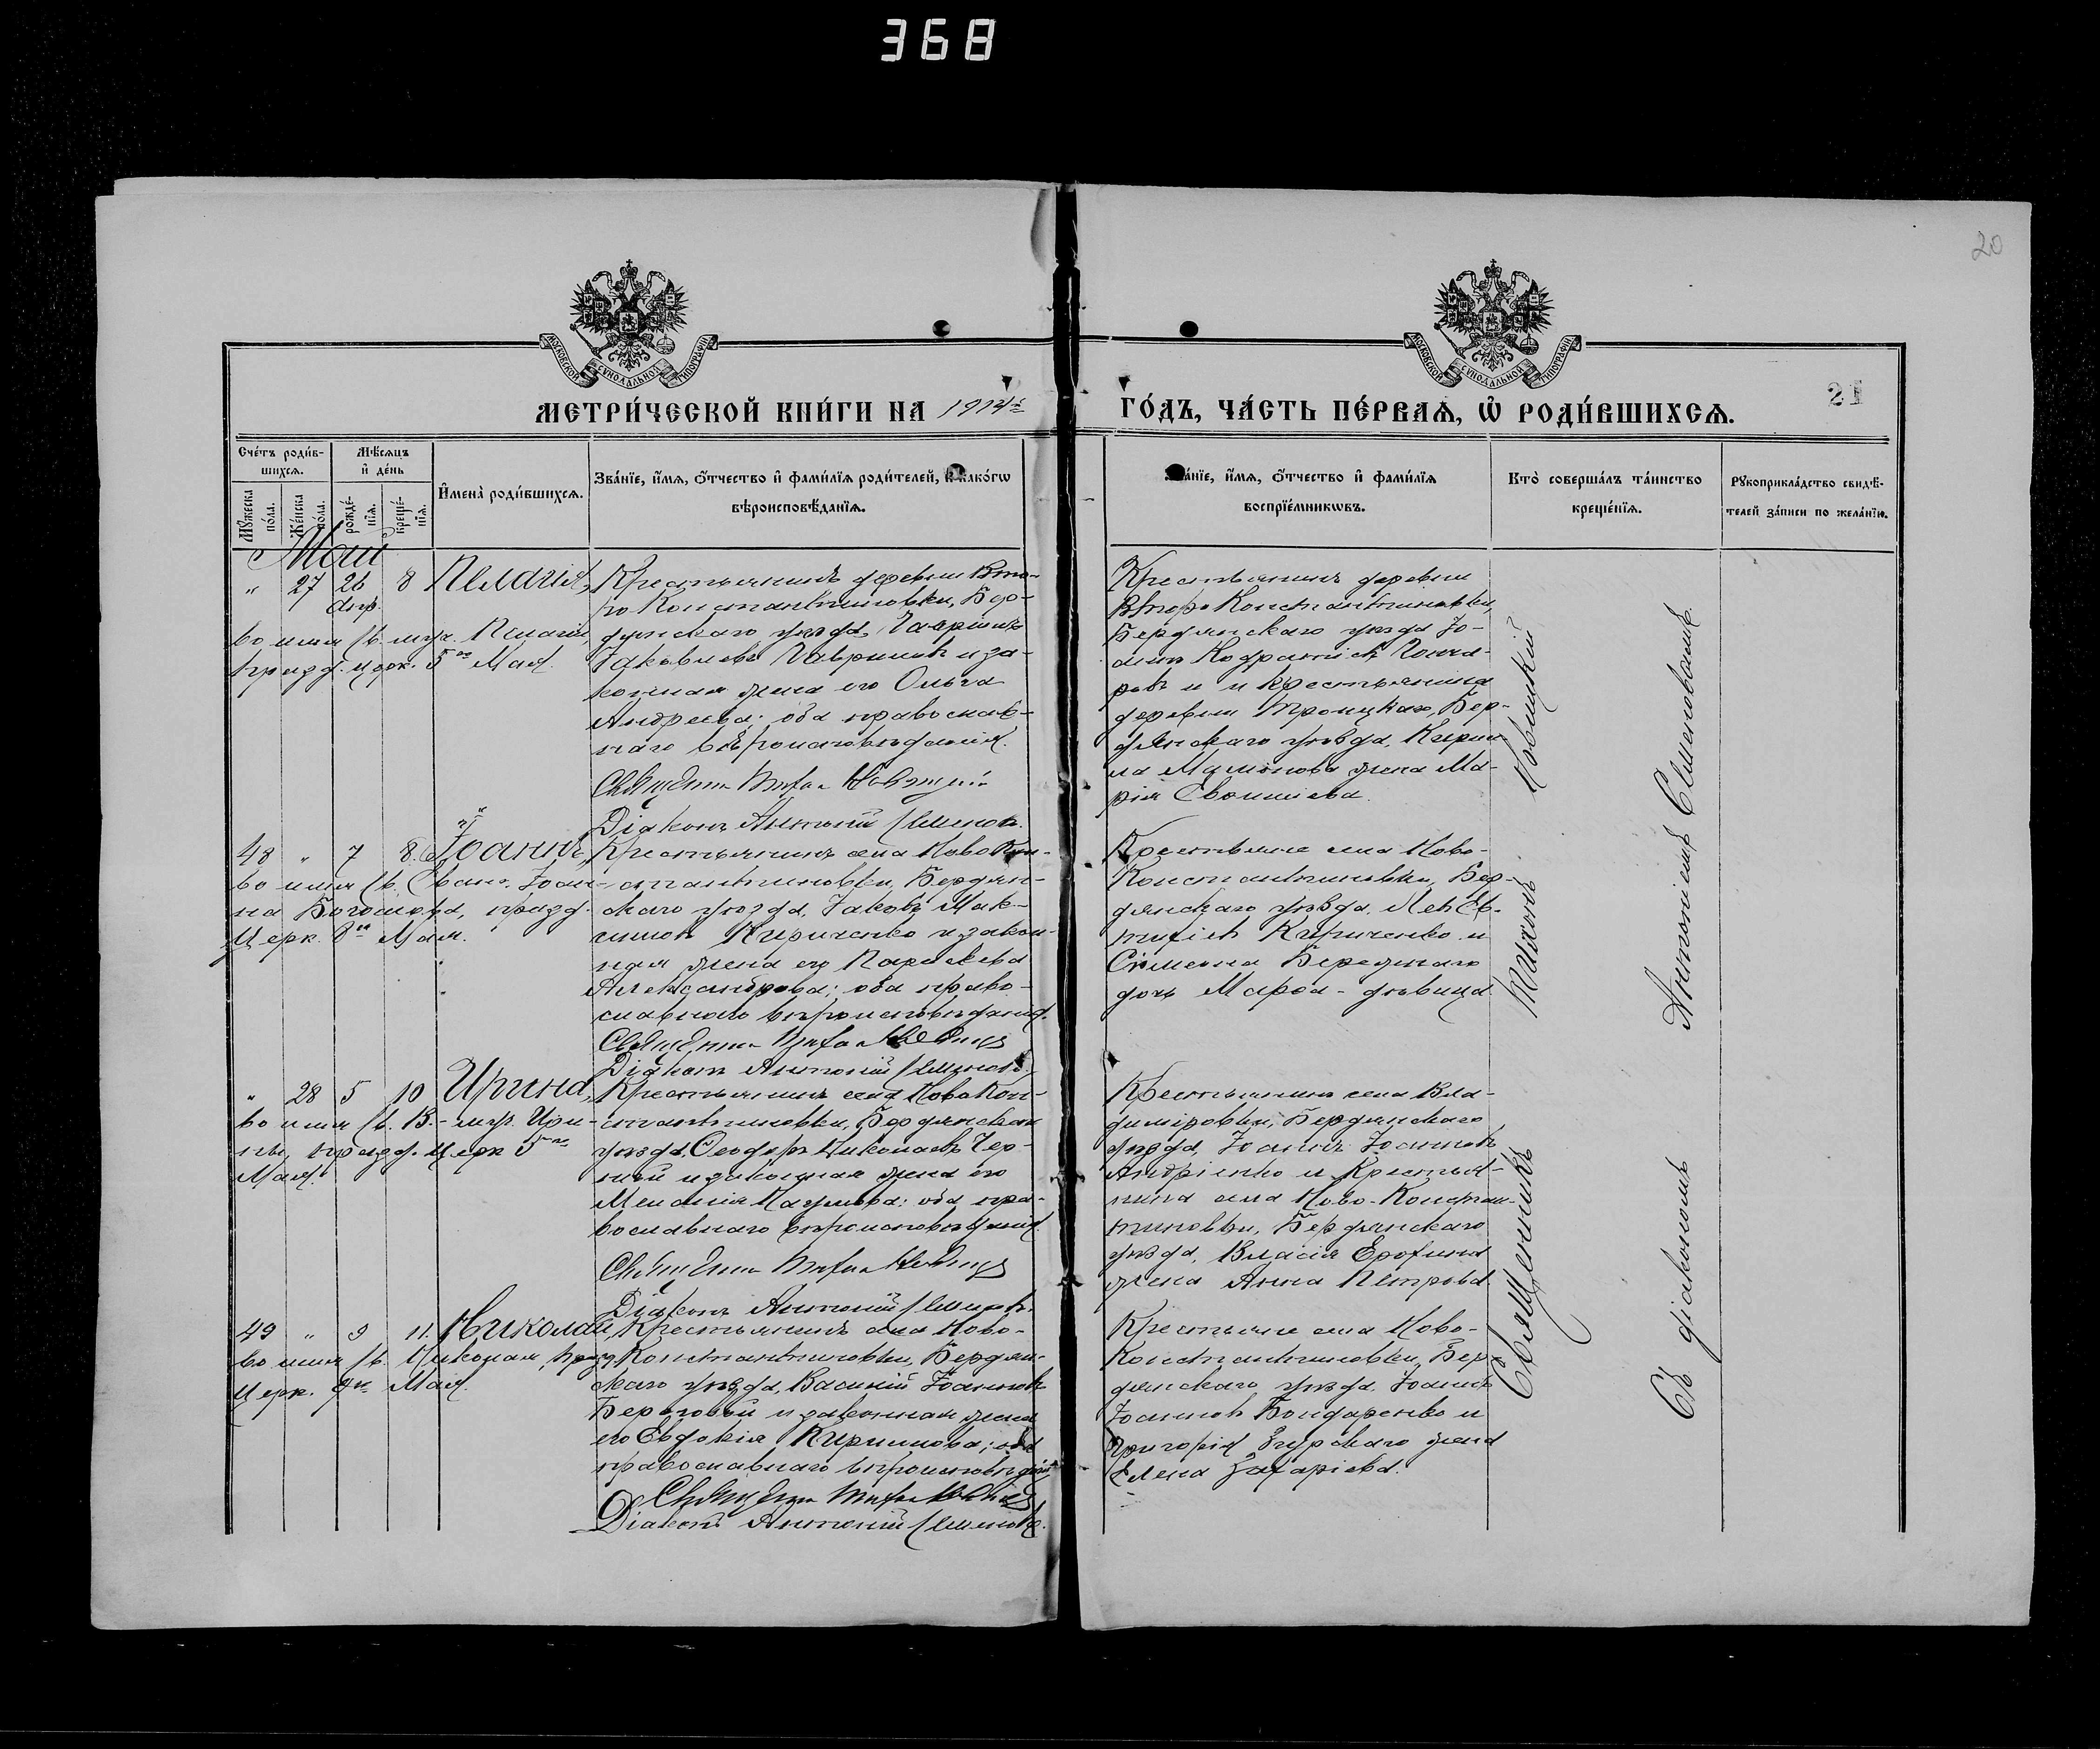 368
20
МОСКОВСКОЙ СѴНОДАЛЬНОЙ ТИПОГРАФІИ
МОСКОВСКОЙ СѴНОДАЛЬНОЙ ТИПОГРАФІИ
МЕТРИ́ЧЕСКОЙ КНИ́ГИ НА 1914й
ГО́ДЪ, ЧА́СТЬ ПЕ́РВАЯ, Ѽ РОДИ́ВШИХСЯ.
21
Сче́тъ роди́в-
шихся.
Мѣ́сяцъ
и҆ де́нь
Мꙋ́жеска
по́ла.
Же́нска
по́ла.
рожде́-
нїя.
креще́-
нїя.
И҆мена̀ роди́вшихся.
Зва́нїе, и҆́мя, ѻ҆́тчество и҆ фами́лїя роди́телей, и҆ како́гѡ
вѣроисповѣ́данїя.
Зва́нїе, и҆́мя, ѻ҆́тчество и҆ фами́лїя
воспрїе́мникѡвъ.
Кто̀ соверша́лъ та́инство
креще́нїя.
Рꙋкоприкла́дство свидѣ́-
телей за́писи по жела́нїю.
Май
" 27 26 8 Пелагія,
Апр.
во имя св. муч. Пелагіи,
празд. церк. 5го Мая.
Крестьянинъ деревни Вто-
ро Константиновки, Бер-
дянскаго уѣзда, Гавріилъ
Іаковлевъ Гавришъ и за-
конная жена его Ольга
Андреева; оба православ-
наго вѣроисповѣданія.
Священникъ Тихонъ Новицкій
Діаконъ Антоній Сѣменовъ.
Крестьянинъ деревни
Второ Константиновки,
Бердянскаго уѣзда Іо-
аннъ Гонча-
ровъ и крестьянина
деревни Троицкаго, Бер-
дянскаго уѣзда, Кирил-
ла жена Ма-
рія Евѳиміева.
48 " 7 8. Іоаннъ,
во имя св. Еванг. Іоан-
на Богослова, празд.
церк. 8го Мая.
Крестьянинъ села Ново Кон-
стантиновки, Бердян-
скаго уѣзда, Іаковъ Мак-
симовъ Кириченко и закон-
ная жена его Параскева
Александрова; оба право-
славнаго вѣроисповѣданія.
Священникъ Тихонъ Новицкій
Діаконъ Антоній Сѣменовъ.
Крестьяне села Ново-
Константиновки, Бер-
дянскаго уѣзда, Левъ Ев-
тихіевъ Кириченко и
Сѵмеона Бережнаго
дочь Марѳа - дѣвица.
" 28 5 10 Ирина,
во имя св. В.-муч. Ири-
ны, празд. церк 5го
Мая.
Крестьянинъ села Ново Кон-
стантиновки, Бердянскаго
уѣзда, Ѳеодоръ Николаевъ Чер-
ный и законная жена его
Меланія Наумова; оба пра-
вославнаго вѣроисповѣданія.
Священникъ Тихонъ Новицкій
Діаконъ Антоній Сѣменовъ.
Крестьянинъ села Вла-
диміровки, Бердянскаго
уѣзда, Іоаннъ Іоанновъ
Андріенко и Крестья-
нина села Ново-Констан-
тиновки, Бердянскаго
уѣзда, Власія Ерофина
жена Анна Петрова.
49 " 9 11. Николай,
во имя св. Николая, празд.
церк. 9го Мая.
Крестьянинъ села Ново-
Константиновки, Бердян-
скаго уѣзда, Василій Іоанновъ
Береговой и законная жена
его Евдокія Кириллова; оба
православнаго вѣроисповѣданія
Священникъ Тихонъ Новицкій
Діаконъ Антоній Сѣменовъ.
Крестьяне села Ново-
Константиновки, Бер-
дянскаго уѣзда, Іоаннъ
Іоанновъ Бондаренко и
Григорія Згурскаго жена
Елена Захаріева.
Священникъ Тихонъ Новицкій
Съ діакономъ Антоніемъ Сѣменовымъ.